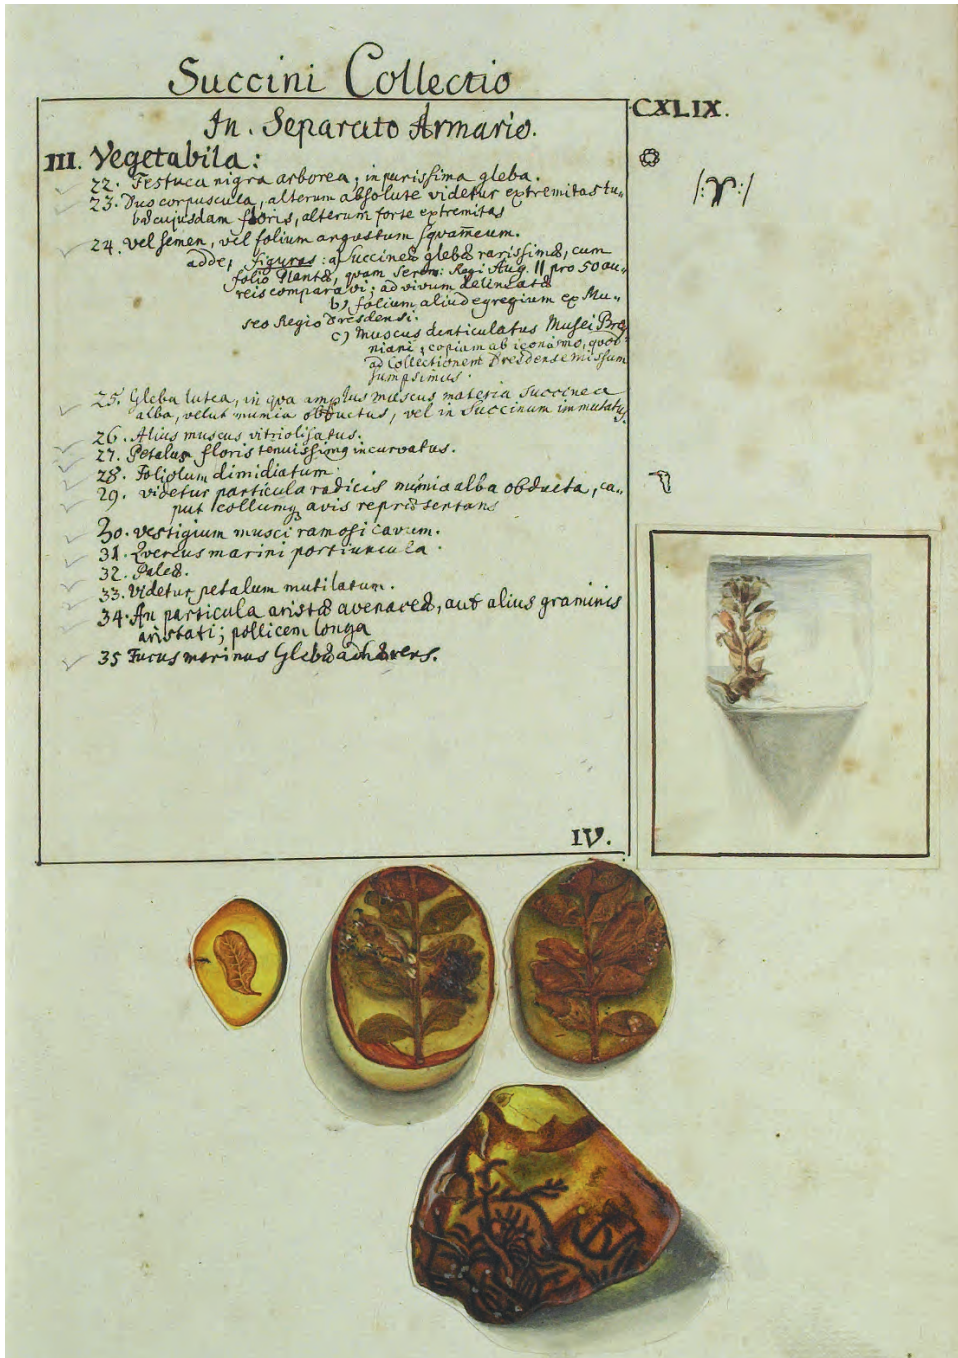 Succini Collectio
CXLIX.
In. Separato Armario.
III. Vegetabila:
22. Festuca nigra arborea, in purissima gleba.
23. Duo corpuscula, alterum absolute videtur extremitas tu-
bi cujusdam floris, alterum forte extremitas
24. vel semen, vel folium angustum squam̅eum.
adde, figuras: a) succineæ glebæ rarissimæ, cum
folio Plantæ, quam Seren: Regi Aug. II pro 50 au-
reis comparavi; ad vivum delineatæ
b) folium aliud egregium ex Mu-
seo Regio Dresdensi.
c) Muscus denticulatus Musei
niani, copiam ab quod
ad Collectionem Dresdense missum
sumpsimus.
25. Gleba lutea, in qva amplus muscus materia succinea
alba, velut mumia obductus, vel in Succinum immutatus.
26. Alius muscus vitriolisatus.
27. Petalum floris tenuissimq incurvatus.
28. Foliolum dimidiatum.
29. videtur particula radicis mumia alba obducta, ca-
put collumq avis repræsentans
30. vestigium musci ramosi cavum.
31. Qvercus marini portiuncula.
32. Paleæ.
33. Videtur petalum mutilatum.
34. An particula aristæ avenareæ, aut alius graminis
aristati; pollicem longa
35 Fucus marinus Glebæ adhærens.
IV.